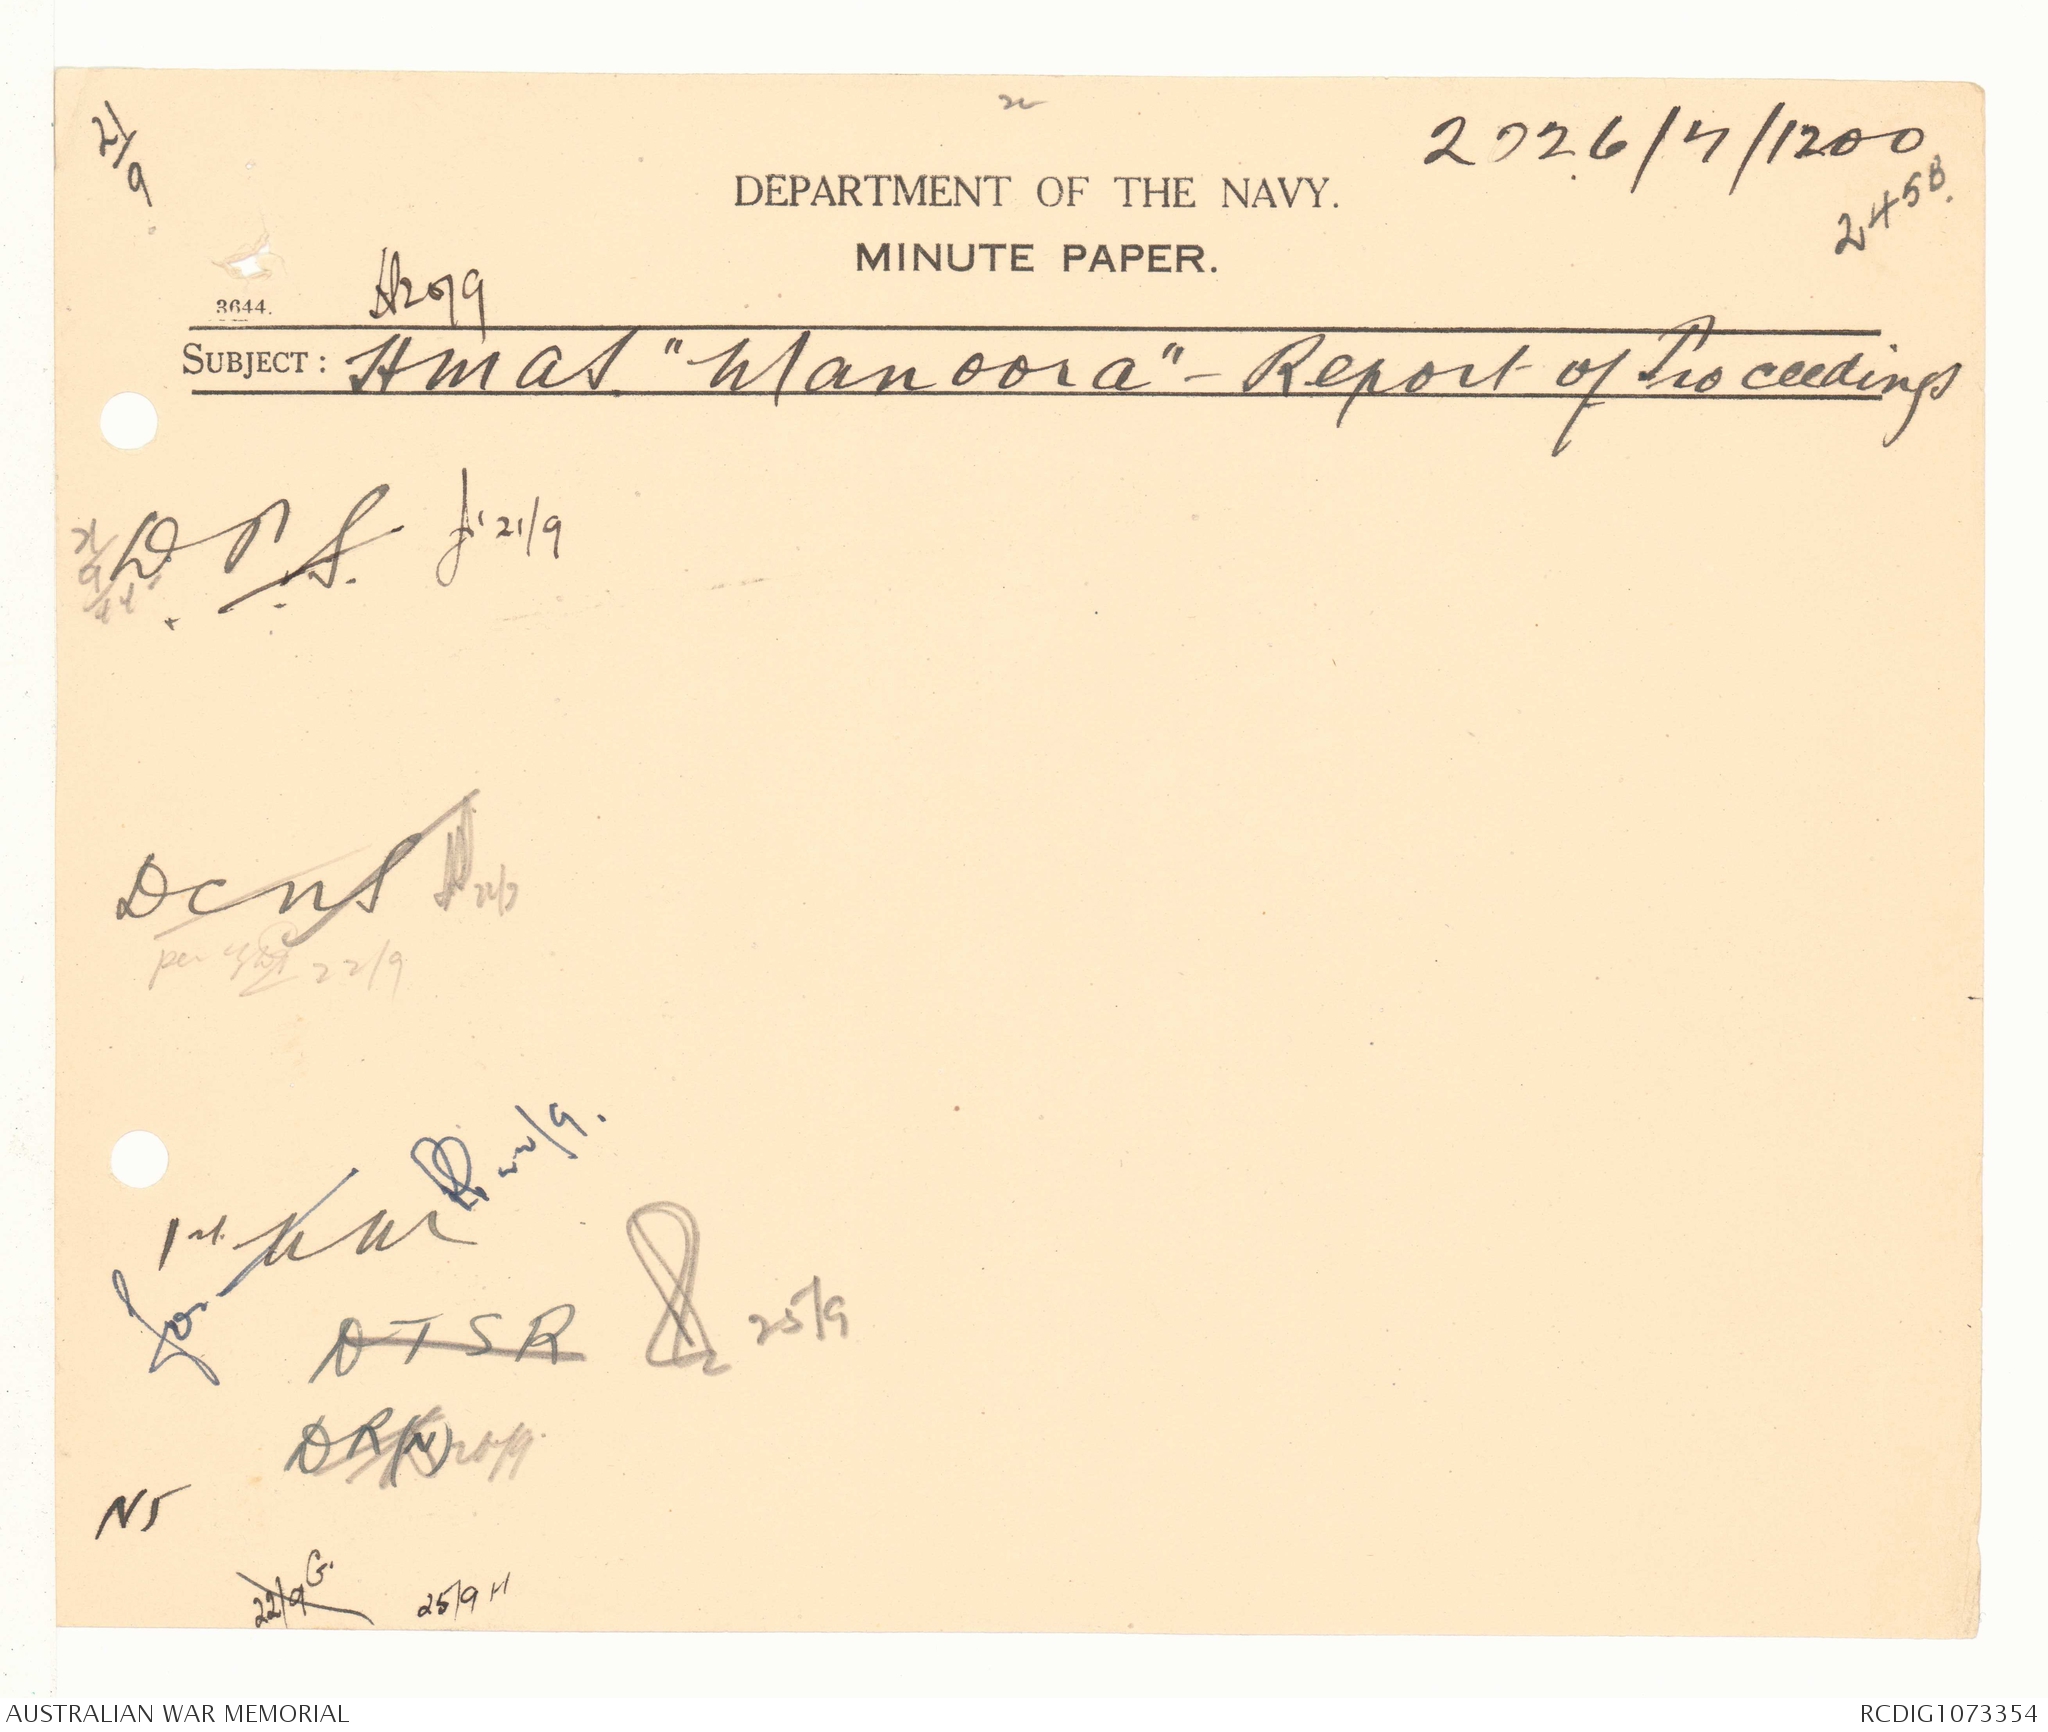 21/9
2026/7/1200
245B.
DEPARTMENT OF THE NAVY.
MINUTE PAPER.
3644.
H 20/9
SUBJECT: HMAS "Manoora" - Report of Proceedings
D P S. 21/9
DCNS 22/9
per 22/9
22/9.
1st
for
DTSR 25/9
DR(N)
N5
22/9 G.
25/9 H
AUSTRALIAN WAR MEMORIAL
RCDIG1073354